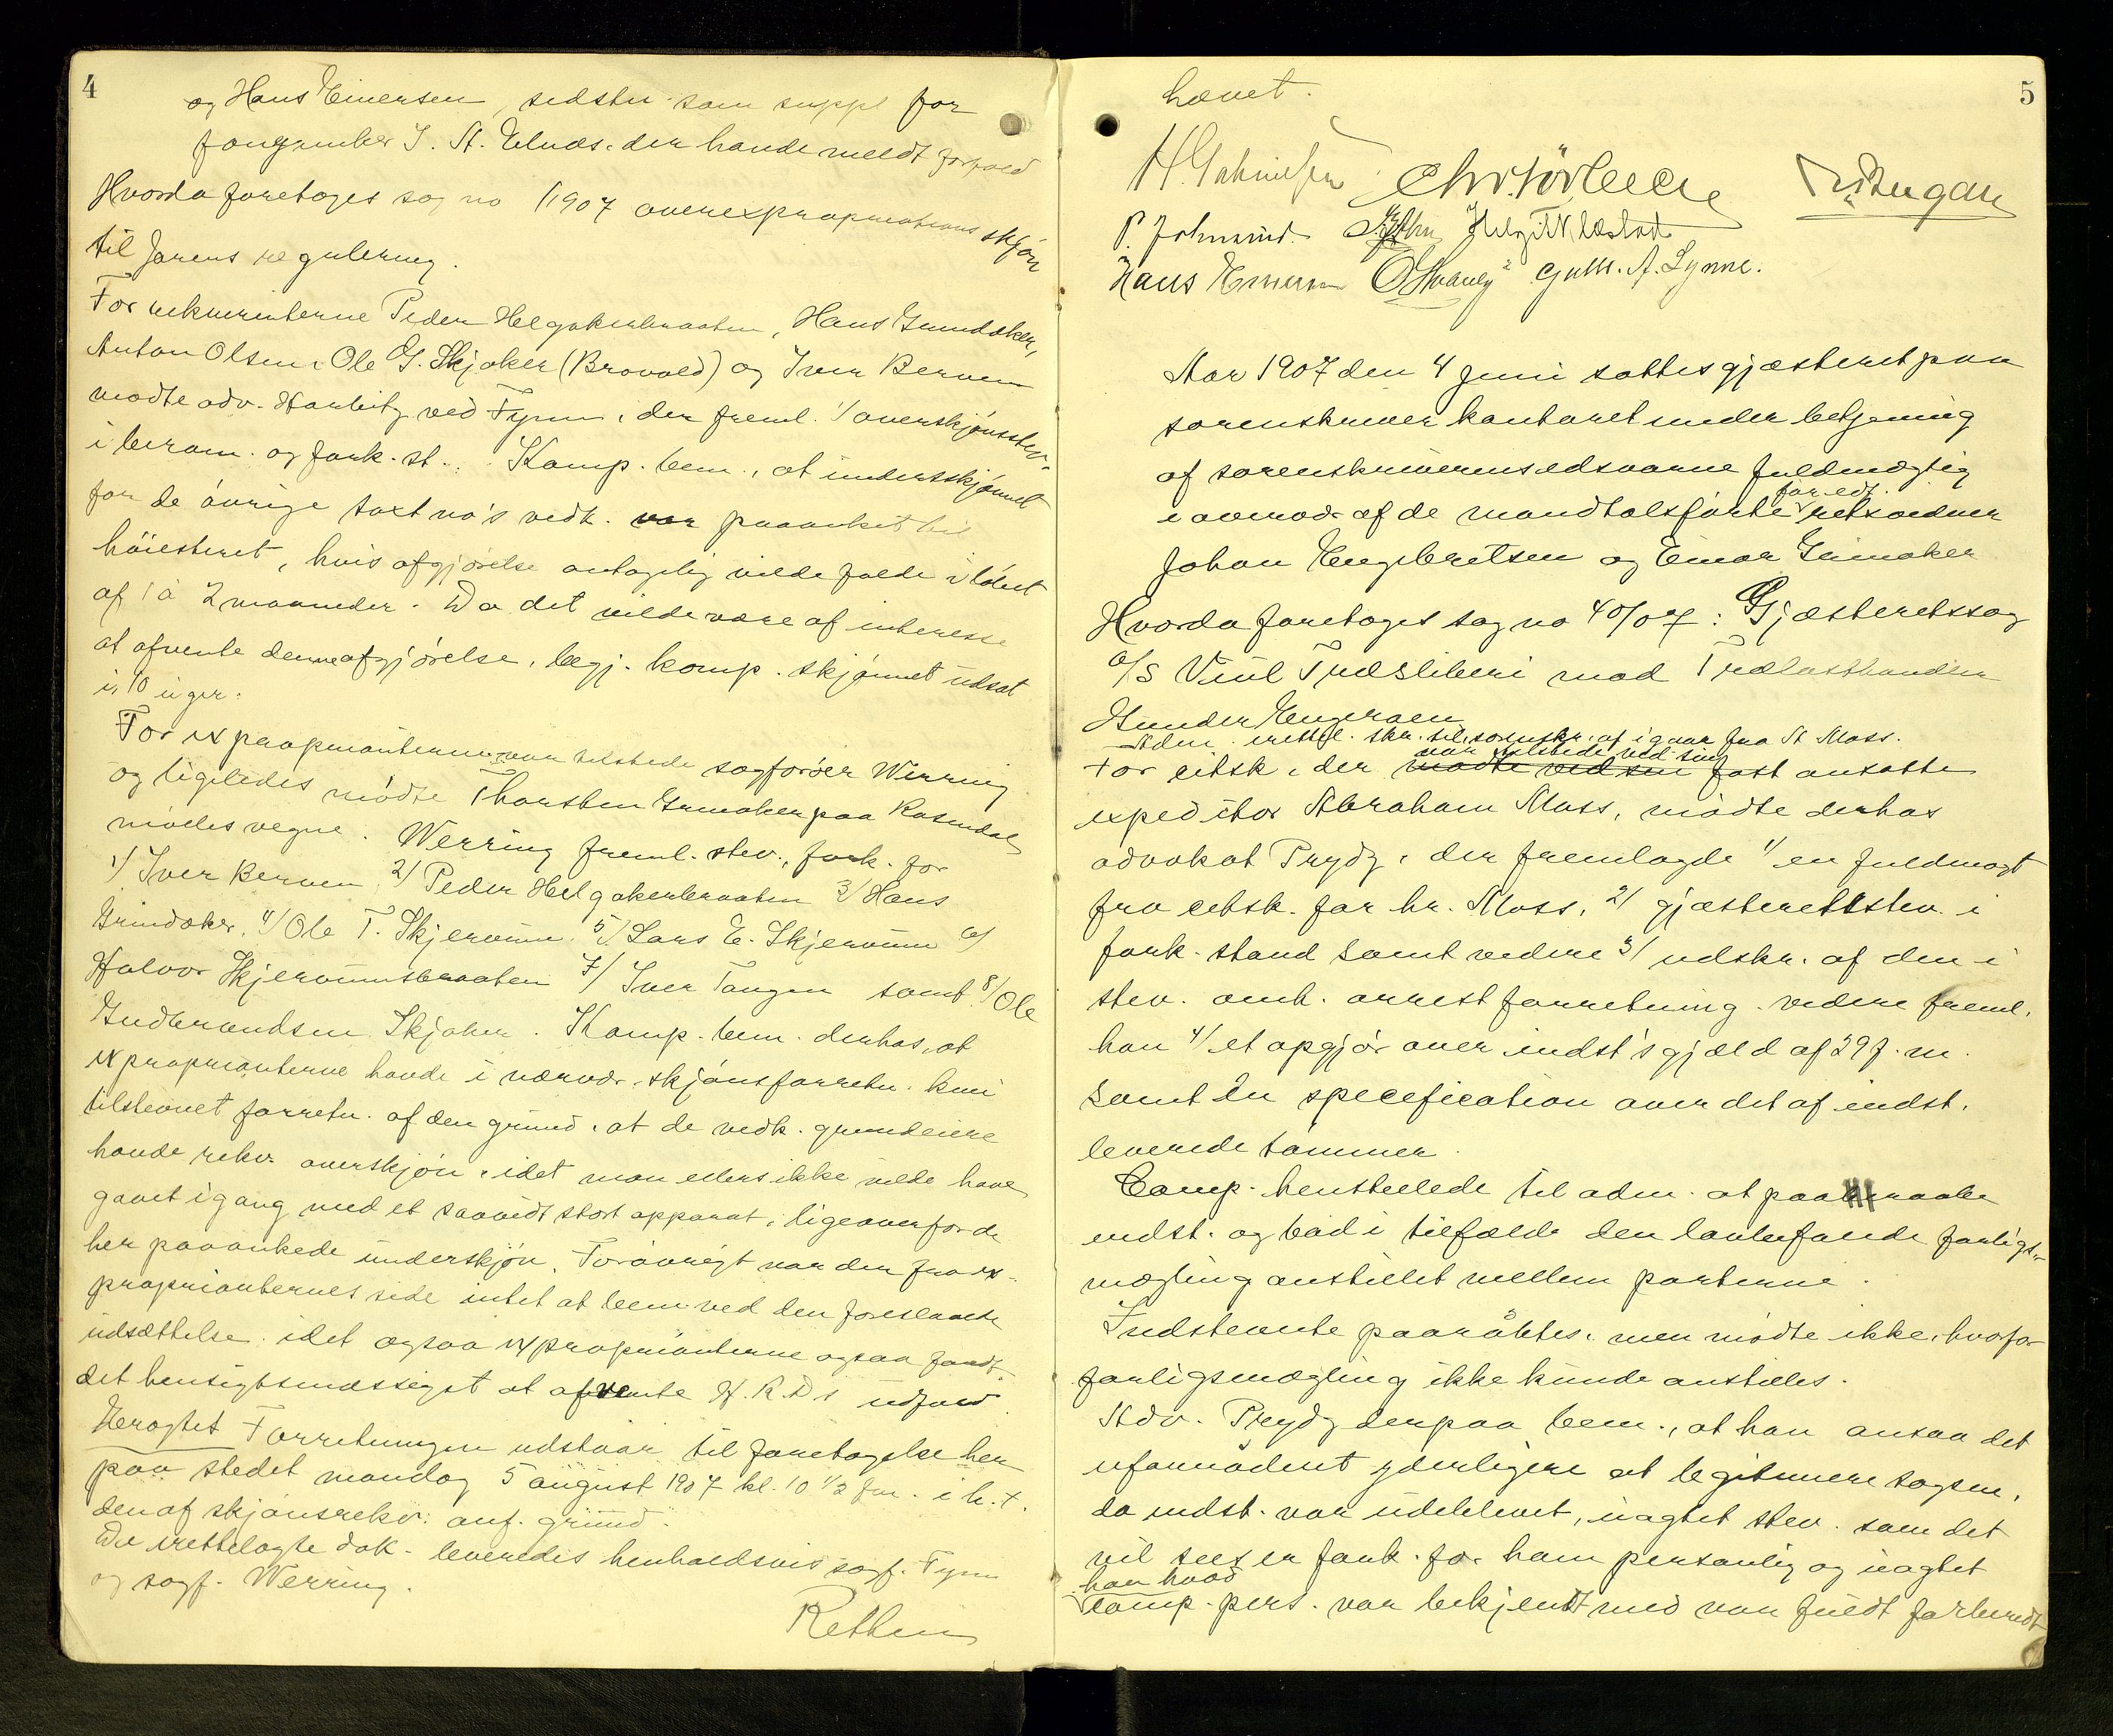 4
og Hans Einersen, sidstn. som suppl for
J. A. Elnæs, der havde meldt forfald
Hvorda foretoges sag no 1/1907 overexpropriations skjøn
til Jarens regulering.
For rekvirenterne Peder Helgakerbraaten, Hans Grindaker,
Anton Olsen, Ole G. Skjaker (Brovold) og Iver Berven
mødte adv. Harbitz ved Fynn, der freml. 1/ overskjønsstev.
i beram. og fork. st. Komp. bem., at underskjønnet
for de øvrige taxt no's vedk. var paaanket til
høiesteret, hvis afgjørelse antagelig vilde falde i løbet
af 1 à 2 maaneder. Da det vilde være af interesse
at afvente denne afgjørelse, begj. komp. skjønnet udsat
i 10 uger.
For exproprianterne var tilstede sagfører Werring
og ligeledes mødte Thorsten Grinaker paa Rosendal
mølles vegne. Werring freml. stev., fork. for
1/ Iver Berven 2/ Peder Helgakerbraaten 3/ Hans
Grindaker, 4/ Ole T. Skjervum 5/ Lars E. Skjervum 6/
Halvor Skjervumsbraaten 7/ Iver Tangen samt 8/ Ole
Gudbrandsen Skjaker. Komp. bem. derhos, at
exproprianterne havde i nærvær. skjønsforretn. kun
tilstevnet forretn. af den grund, at de vedk. grundeiere
havde rekv. overskjøn, idet man ellers ikke vilde have
gaaet igang med et saavidt stort apparat, ligeoverfor de
her paaankede underskjøn. Forøvrigt var der fra ex-
proprianternes side intet at bem. ved den foreslaaede
udsættelse, idet ogsaa exproprianterne ogsaa fandt
det hensigtsmæssigst at afvente H. R. D's udfald.
Eragtet Forretningen udstaar til foretagelse her
paa stedet mandag 5 august 1907 kl. 10 1/2 fm. i h. t.
den af skjønsrekv. anf. grund.
De irettelagte dok. leveredes henholdsvis sagf. Fynn
og sagf. Werring.
Retten
5
hævet.
P. Johnsrud. Helge N. Elstad
Hans Einersen Gulbr. A. Lynne.
Aar 1907 den 4 juni sattes gjæsteret paa
sorenskriverkontoret under betjening
af sorenskriverens edsvorne fuldmægtig
i overvær af de mandtalsførte for edt. retsvidner
Johan Engebretsen og Einar Grinaker
Hvorda foretoges sag no 40/07: Gjæsteretssag
A/S Viul Træsliberi mod Trælasthandler
Gunder Engeraen
Adm. irettel. skr. til sorenskr. af igaar fra A. Moss.
For citsk., der var tilstede ved sin mødte ved sin fast ansatte
expeditør Abraham Moss, mødte derhos
advokat Prydz, der fremlagde 1/ en fuldmagt
fra citsk. for hr. Moss, 2/ gjæsteretsstev. i
fork. stand samt videre 3/ udskr. af den i
stev. omh. arrestforretning. videre freml.
han 4/ et opgjør over indst's gjæld af 29 f. m.
samt en specefication over det af indst.
leverede tømmer.
Comp. henstillede til adm. at paaraabe
indst. og bad i tilfælde den lovbefalede forligs-
mægling anstillet mellem parterne.
Indstevnte paaraabtes, men mødte ikke, hvorfor
forligsmægling ikke kunde anstilles.
Adv. Prydz derpaa bem., at han ansaa det
ufornødent yderligere at legitimere sagsen,
da indst. var udeblevet, uagtet stev. som det
vil sees er fork. for ham personlig og uagtet
han hvad comp. pers. var bekjendt med var fuldt forberedt